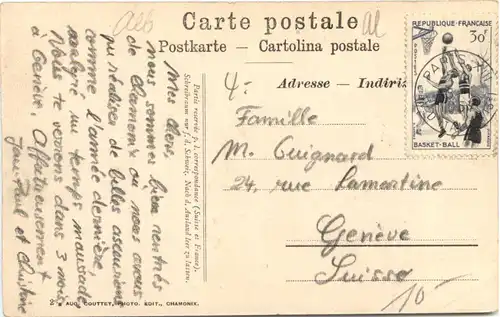 Carte postale
Postkarte - Cartolina postale
Adresse - Indiriz
REPUBLIQUE FRANÇAISE
30f
POSTES
BASKET-BALL
PARIS
Partie réservée p. l. correspondance (Suisse et France).
Schreibraum nur f. d. Schweiz. Nach d. Ausland leer zu lassen.
Alb
al
4.-
Mes chers,
nous sommes bien rentrés
de Chamonix où nous avons
pu réaliser de belles ascensions
comme l'année dernière,
malgré un temps maussade.
Nous te verrons dans 3 mois
à Genève. Affectueusement
Jean-Paul et Christine
Famille
M. Guignard
24, rue Lamartine
Genève
Suisse
10.-
AUG. COUTTET, PHOTO. EDIT., CHAMONIX.